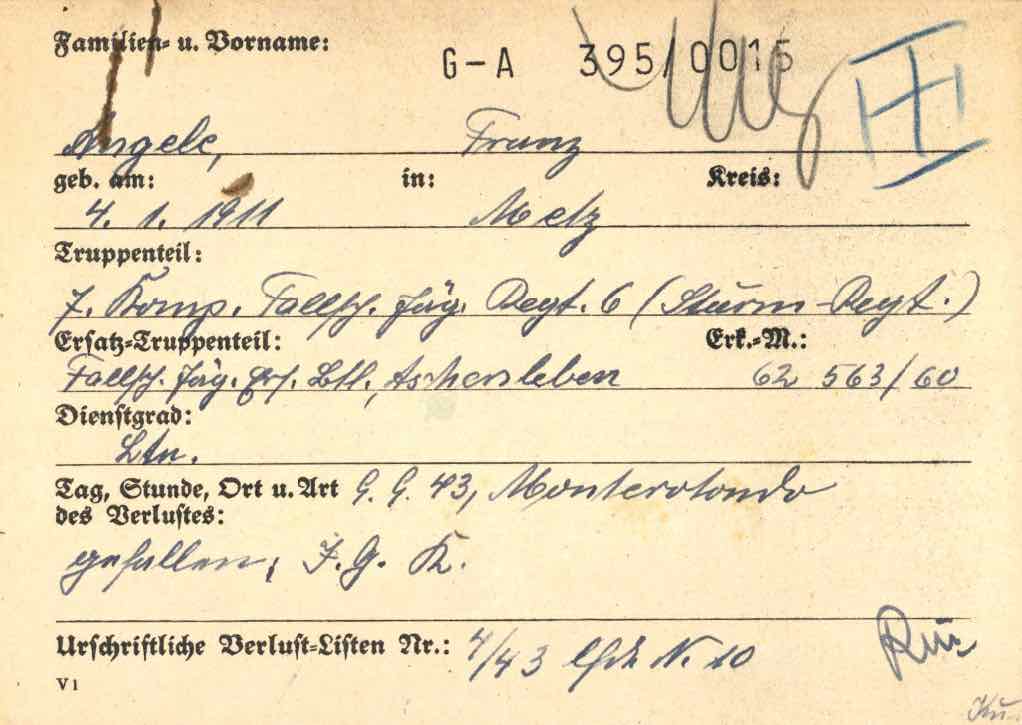 Familien- u. Vorname:
G-A 395/0015
Angele, Franz
geb. am: in: Kreis:
4. 1. 1911 Metz
Truppenteil:
7. Komp. Fallsch. Jäg. Regt. 6 (Sturm-Regt.)
Ersatz-Truppenteil: Erk.-M.:
Fallsch. Jäg. Ers. Btl., Aschersleben 62 563/60
Dienstgrad:
Ltn.
Tag, Stunde, Ort u. Art 9. 9. 43, Monterotondo
des Verlustes:
gefallen, I. G. K.
Urschriftliche Verlust-Listen Nr.: 4/43 lfd. N. 10
V 1